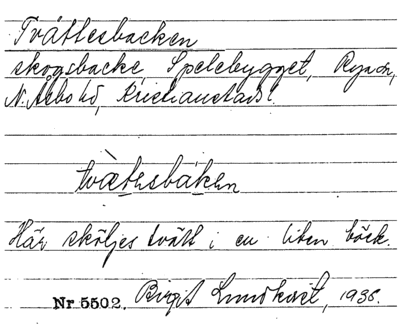 Tvättesbacken
skogsbacke, Spelebygget, Ryssn,
N. Åsbo hd, Kristianstads l.
tvæ̀tesbakən
Här sköljes tvätt i en liten bäck.
Nr 5502. Birgit Lundkvist, 1936.